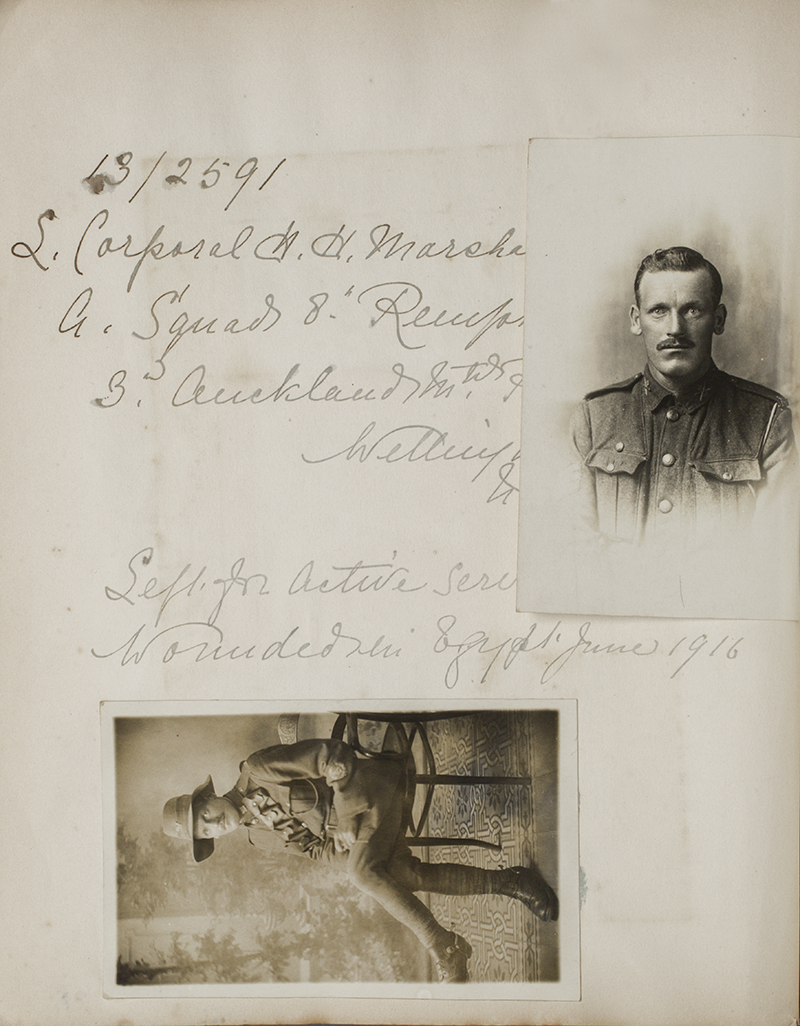 13/2591
L. Corporal H. H. Marsha
A. Squad 8." Reinfor
3.d Auckland Mtd
Welling
Left for Active Serv
Wounded in Egypt. June 1916